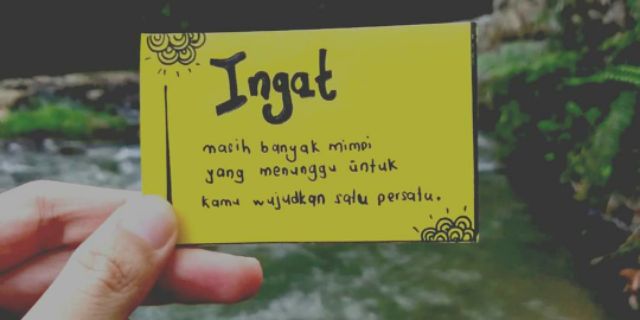 Ingat
masih banyak mimpi
yang menunggu untuk
kamu wujudkan satu persatu.